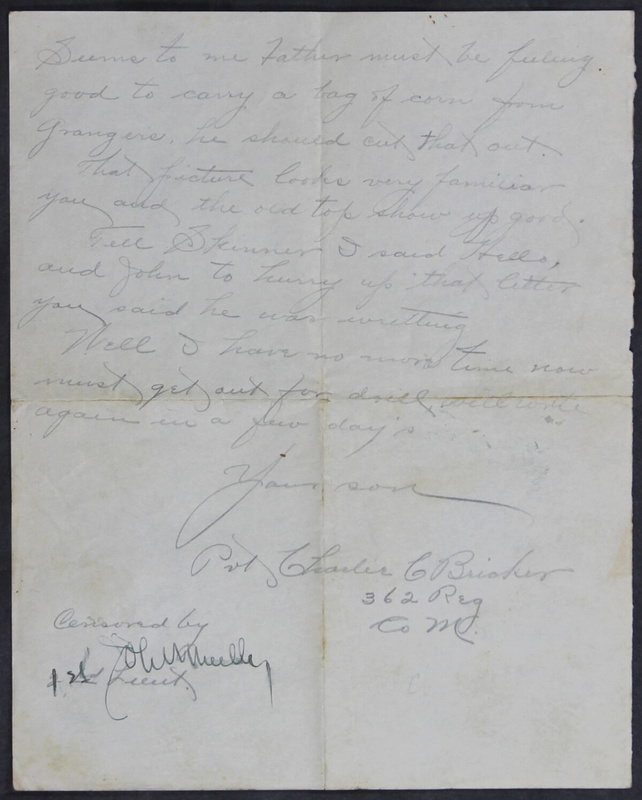 Seems to me Father must be feeling
good to carry a bag of corn from
Grangers. he should cut that out.
That picture looks very familiar
you and the old top show up good.
Tell Skinner I said Hello,
and John to hurry up that letter
you said he was writting
Well I have no more time now
must get out for drill, will write
again in a few day's
Your son
Pvt Charlie C Bricker
362 Reg
Co M.
Censored by
1st Lieut.